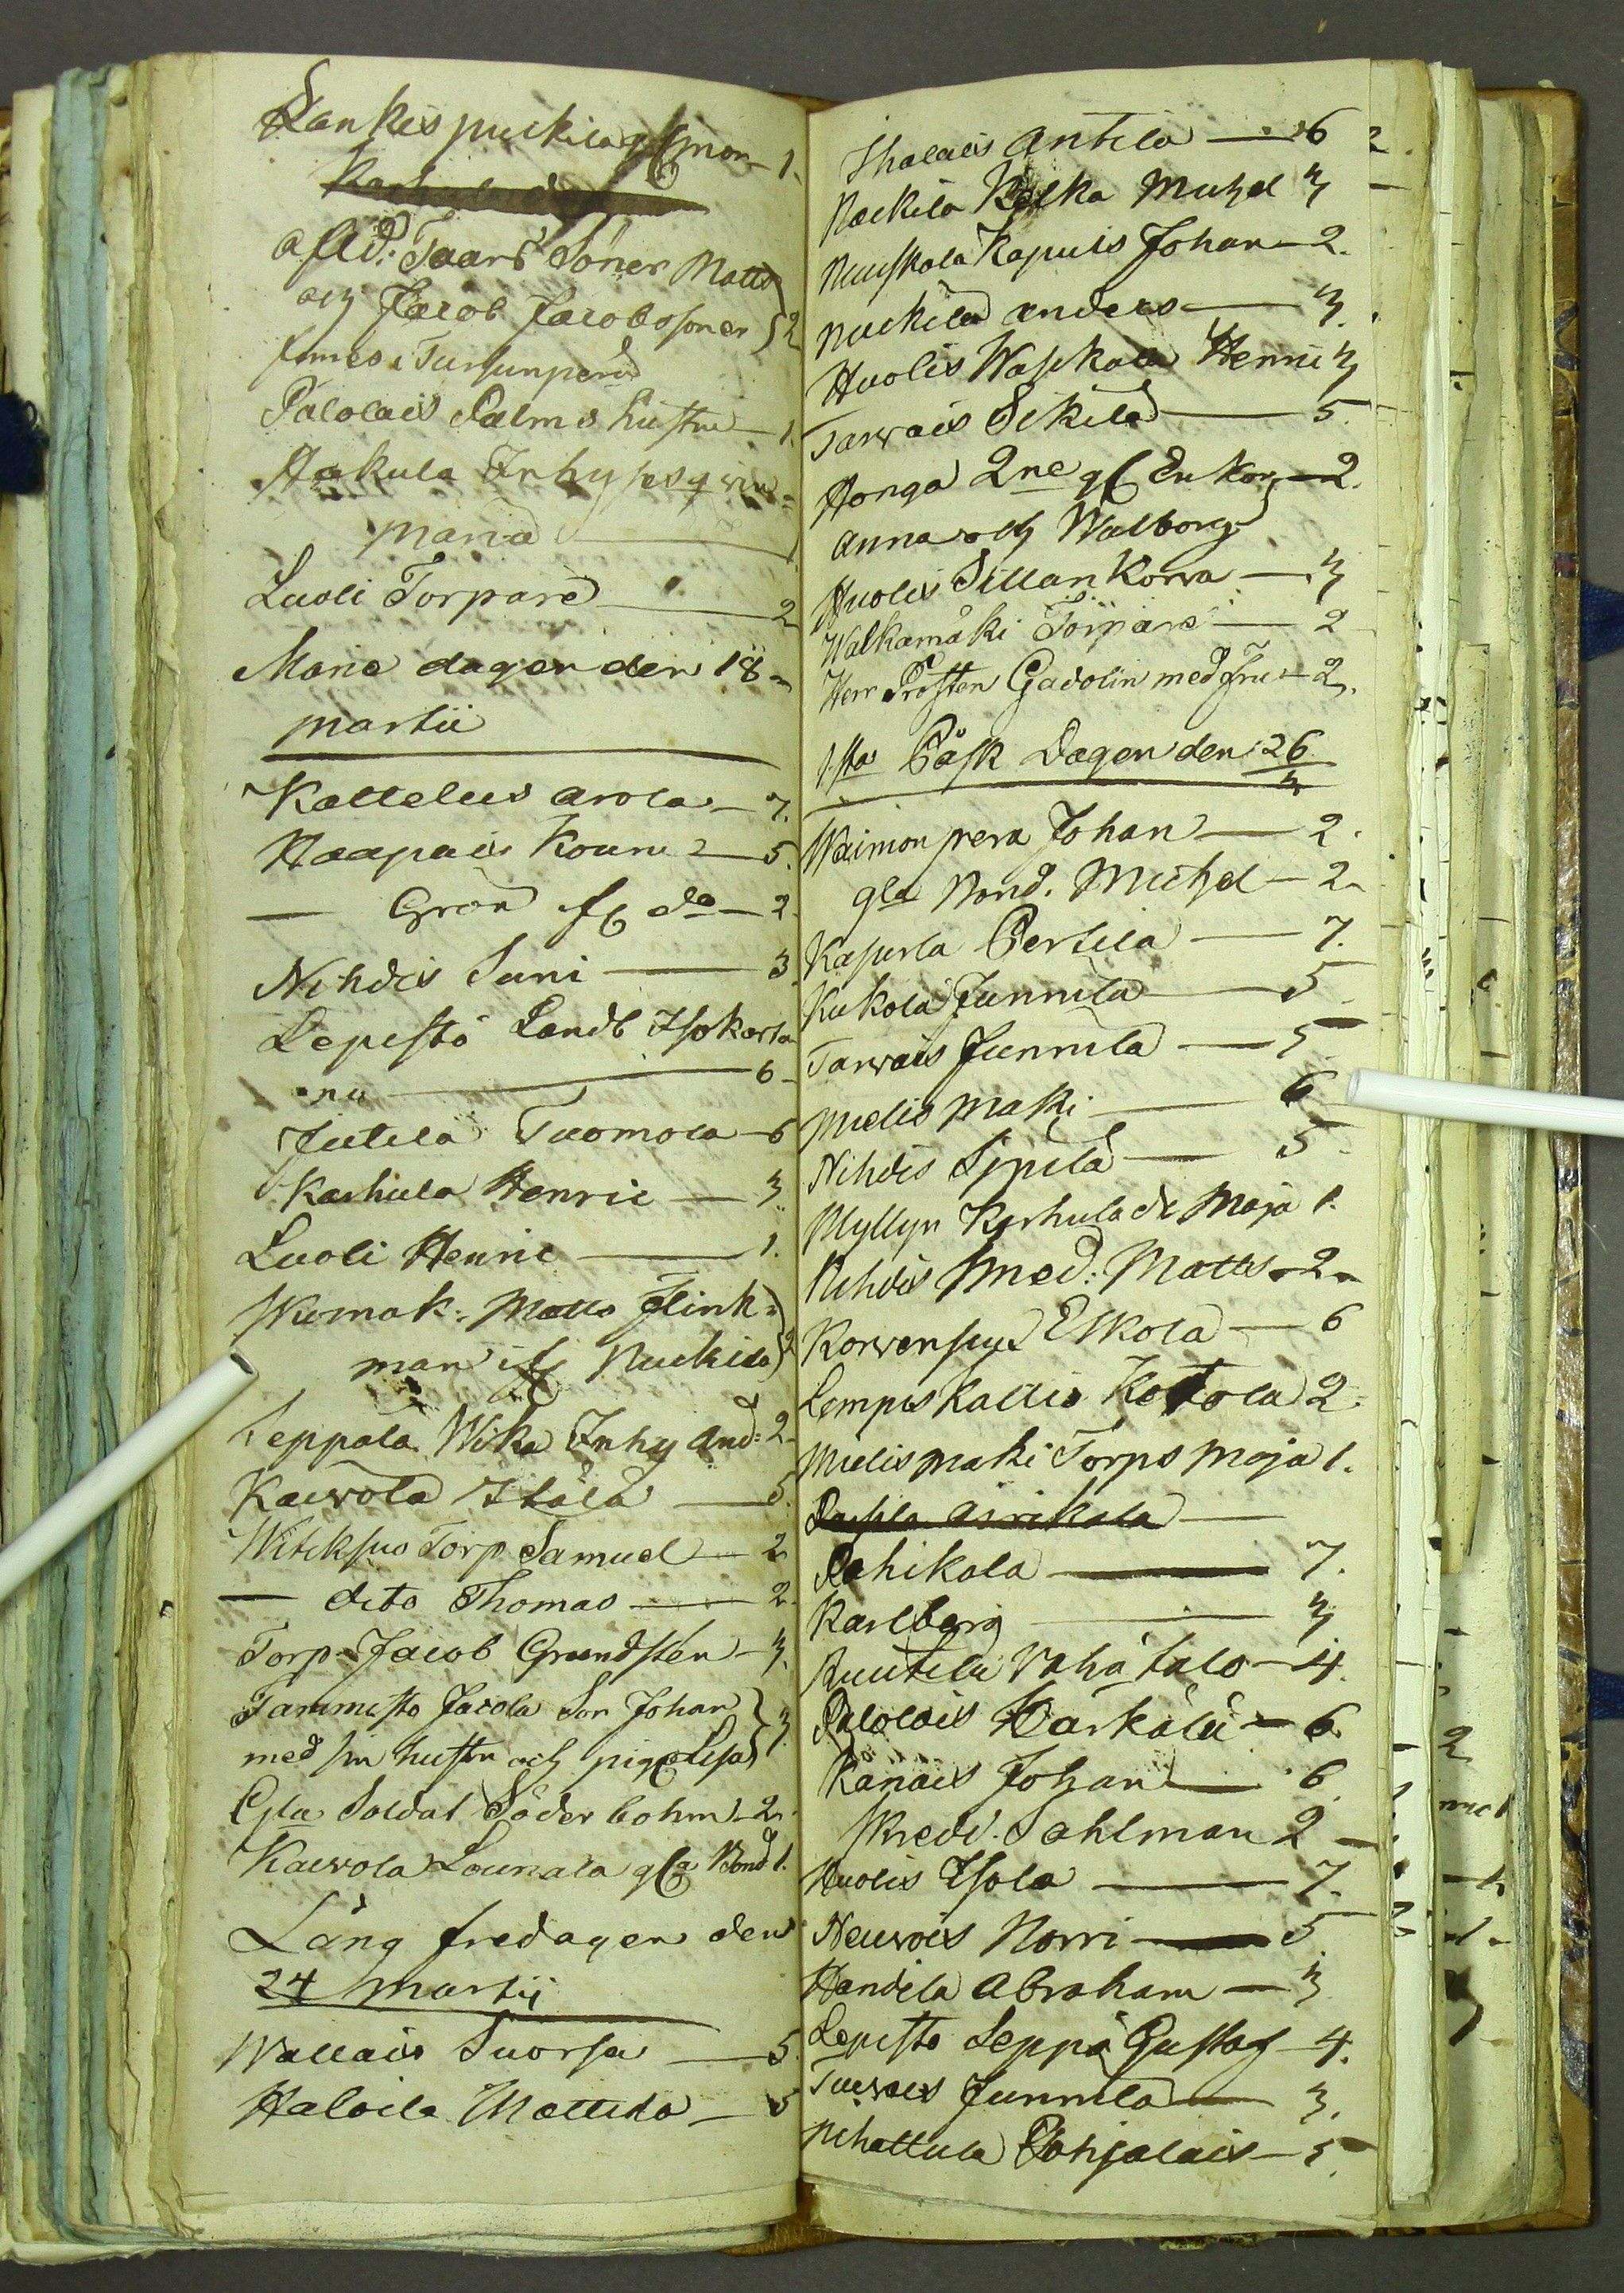 Lankis puckila gl mor — 1.
a flid. Taars Söner Matts
och Jacob Jacobssoner 2
finnes i Tursunperä
Palolais Palms hustru — 1.
Hakula Inhyses qvin=
Maria — 1
Luoli Torpare — 2
Marie dagen den 18
martii
Kattelus Arola — 7.
Haapais Kouru — 5.
— Grön sf do — 2.
Nihdis Suni — 3
Lepistö Landb Isokarta
nu — 6
Jutila Tuomola — 6
Karhula Henric — 3.
Luoli Henric — 1.
Wuomak: Matts Flink= 2
man if Nuckila
Leppälä Wika Inhy And: 2
Kaivola Itälä — 5.
Witiksuo Torp Samuel — 2
— dito Thomas — 2.
Torp Jacob Grundsten — 3.
Tammisto Jacola Son Johan 3.
med sin hustru och piga Lisa
Gla Soldat Söderbohm — 2.
Kaivola Lounala gla Bond 1.
Lång fredagen den
24 Martij
Wallais Suorsa — 5.
Haloila Mattila — 5
Ihalais Antila — 6
Nuckila Kelka Michel 3
Nuuskala Kapuis Johan — 2.
Nuckila Anders — 3.
Huolis Waskala Henric 3
Tarvais Sikilä — 5.
Honga 2ne gl Enkor — 2.
Anna och Walborg
Huolis Sillan Korva — 3
Walkamäki Torpare — 2
Herr Prosten Gadolin med fru — 2.
1sta Påsk Dagen den 26
3
Waimonperä Johan — 2.
gla Bond. Michel — 2.
Kaperla Pertila — 7.
Kukola Junnila — 5
Tarvais Junnila — 5
Mielis mäki — 6
Nihdis Sipilä — 5
Myllyn Karhula dr Maja 1.
Nihdis Smed: Matts — 2.
Korvensuu Eskola — 6
Lempis Kallio Kotola 2.
Mielismäki Torps Maja 1.
Rahikala — 7.
Karlberg — 3
Ruutila Vähätalo — 4.
Palolais Kärkälä — 6
Känais Johan — 6
Skredd. Sahlman 2
Huolis Isola — 7.
Neuvois Norri — 5
Handela Abraham — 3
Lepisto Seppä Gustaf — 4.
Tuevais Junnila — 3.
Nihattula Pohjalais — 5.